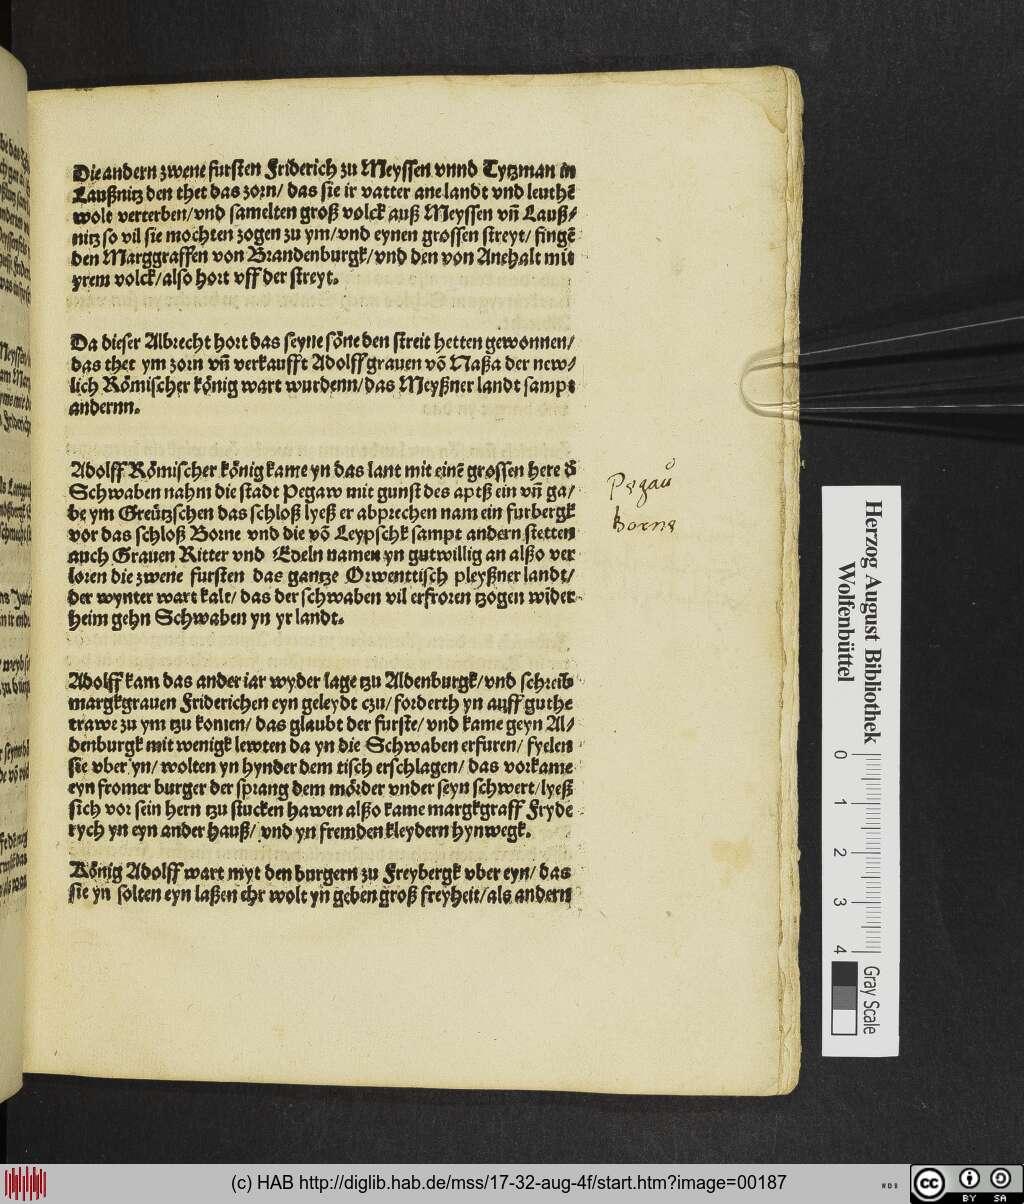 Die andern zwene fursten Friderich zu Meyssen vnnd Tytzman in
Laußnitz den thet das zorn/ das sie ir vatter ane landt vnd leuthē
wolt verterben/vnd samelten groß volck auß Meyssen vn̄ Lauß/
nitz so vil sie mochten zogen zu ym/vnd eynen grossen streyt/ fingē
den Marggraffen von Brandenburgk/vnd den von Anehalt mit
yrem volck/also hort vff der streyt.
Da dieser Albrecht hort das seyne söne den streit hetten gewonnen/
das thet ym zorn vn̄ verkaufft Adolff grauen vō Naßa der new/
lich Römischer könig wart wurdenn/das Meyßner landt sampt
andernn.
Adolff Römischer könig kame yn das lant mit einē grossen here
Schwaben nahm die stadt Pegaw mit gunst des aptß ein vn̄ ga/
be ym Greützschen das schloß lyeß er abprechen nam ein furbergk
vor das schloß Borne vnd die vō Leypschk sampt andern stetten
auch Grauen Ritter vnd Edeln namen yn gutwillig an alßo ver
loren die zwene fursten das gantze Orwenttisch pleyßner landt/
der wynter wart kalt/ das der schwaben vil erfroren tzogen wider
heim gehn Schwaben yn yr landt.
Pegaů
borne
Adolff kam das ander iar wyder lage tzu Aldenburgk/vnd schreib
margkgrauen Friderichen eyn geleydt czu/ forderth yn auff guthe
trawe zu ym tzu komen/ das glaubt der furste/ vnd kame geyn Al/
denburgk mit wenigk lewten da yn die Schwaben erfuren/ fyelen
sie vber yn/ wolten yn hynder dem tisch erschlagen/ das vorkame
eyn fromer burger der sprang dem mörder vnder seyn schwert/lyeß
sich vor sein hern tzu stucken hawen alßo kame margkgraff Fryde
rych yn eyn ander hauß/ vnd yn fremden kleydern hynwegk.
König Adolff wart myt den burgern zu Freybergk vber eyn/ das
sie yn solten eyn laßen ehr wolt yn geben groß freyheit/als andern
Herzog August Bibliothek
Wolfenbüttel
0 1 2 3 4
Gray Scale
(c) HAB http://diglib.hab.de/mss/17-32-aug-4f/start.htm?image=00187
cc BY SA